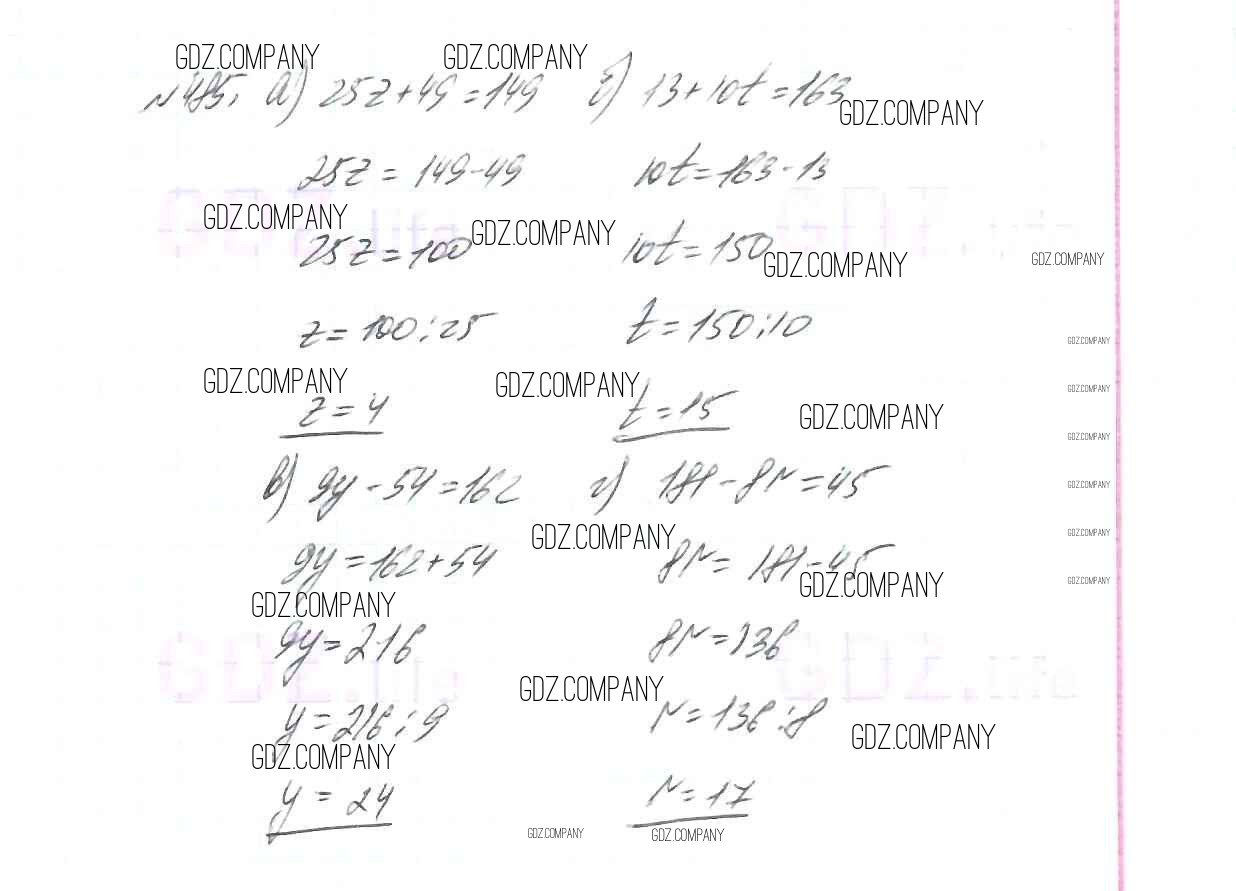 GDZ.COMPANY GDZ.COMPANY
№485. а) 25z+49=149 б) 13+10t=163
GDZ.COMPANY
25z = 149-49 10t=163-13
GDZ.COMPANY GDZ.COMPANY
GDZ.life GDZ.life
25z=100 10t=150
GDZ.COMPANY GDZ.COMPANY
z=100:25 t=150:10
GDZ.COMPANY
GDZ.COMPANY GDZ.COMPANY GDZ.COMPANY
z=4 t=15
GDZ.COMPANY
GDZ.COMPANY
в) 9y-54=162 г) 181-8r=45
GDZ.COMPANY
GDZ.COMPANY GDZ.COMPANY
9y=162+54 8r= 181-45
GDZ.COMPANY GDZ.COMPANY
GDZ.COMPANY
9y=216 8r=136
GDZ.life GDZ.life
GDZ.COMPANY
y=216:9 r=136:8
GDZ.COMPANY GDZ.COMPANY
y=24 r=17
GDZ.COMPANY GDZ.COMPANY